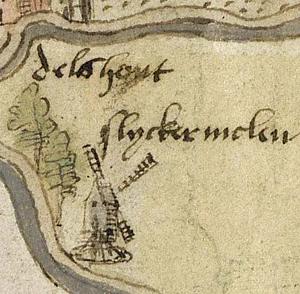 delshout
slyckermolen